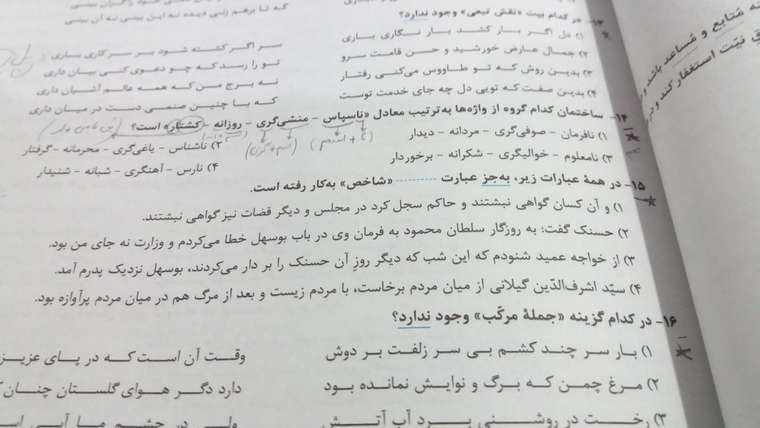 ۱۳- در کدام بیت «نقش تبعی» وجود ندارد؟
۱) دل اگر بار کشد بار نگاری باری
سر اگر کشته شود بر سر کاری باری
۲) جمال عارض خورشید و حسن قامت سرو
تو را رسد که چو دعوی کنی بیان داری
۳) بدین روش که تو طاووس می‌کنی رفتار
نه برج من که همه عالم آشیان داری
۴) بدین صفت که تویی دل چه جای خدمت توست
که با چنین صنمی دست در میان داری
۱۴- ساختمان کدام گروه از واژه‌ها به‌ترتیب معادل «ناسپاس - منشی‌گری - روزانه - کشتار» است؟
۱) نافرمان - صوفی‌گری - مردانه - دیدار
۲) ناشناس - یاغی‌گری - محرمانه - گرفتار
۳) نامعلوم - خوالیگری - شکرانه - برخوردار
۴) نارس - آهنگری - شبانه - شنیدار
۱۵- در همهٔ عبارات زیر، به‌جز عبارت .......... «شاخص» به‌کار رفته است.
۱) و آن کسان گواهی نبشتند و حاکم سجل کرد در مجلس و دیگر قضات نیز گواهی نبشتند.
۲) حسنک گفت: به روزگار سلطان محمود به فرمان وی در باب بوسهل خطا می‌کردم و وزارت نه جای من بود.
۳) از خواجه عمید شنودم که این شب که دیگر روزِ آن حسنک را بر دار می‌کردند، بوسهل نزدیک پدرم آمد.
۴) سیّد اشرف‌الدّین گیلانی از میان مردم برخاست، با مردم زیست و بعد از مرگ هم در میان مردم پرآوازه بود.
۱۶- در کدام گزینه «جملهٔ مرکّب» وجود ندارد؟
۱) بار سر چند کشم بی سر زلفت بر دوش
وقت آن است که در پای عزیز
۲) مرغ چمن که برگ و نوایش نمانده بود
دارد دگر هوای گلستان چنان
۳) رخت در روشنی برد آب آتش
ولی در چشم ما آبی